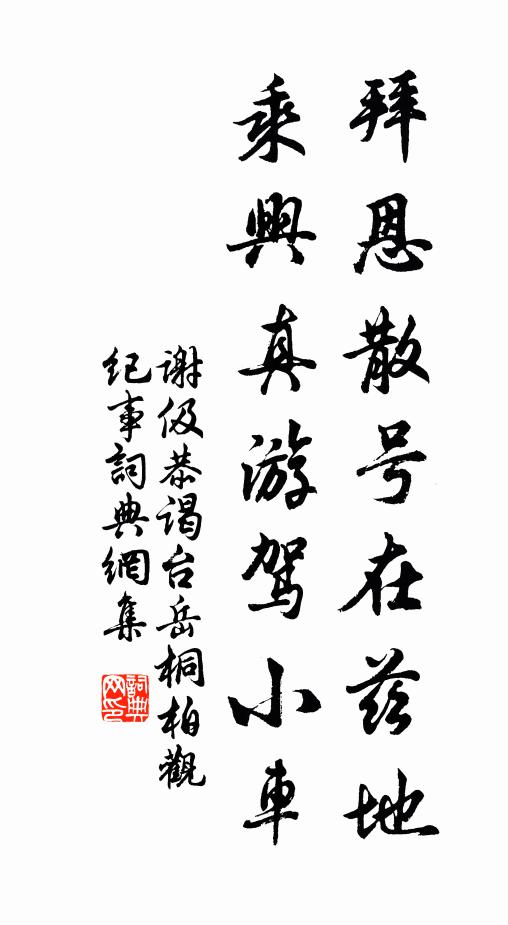 拜恩散号在兹地
乘興真游駕小車
谢伋恭谒台岳桐柏觀
纪事詞典網集
詞典
网印